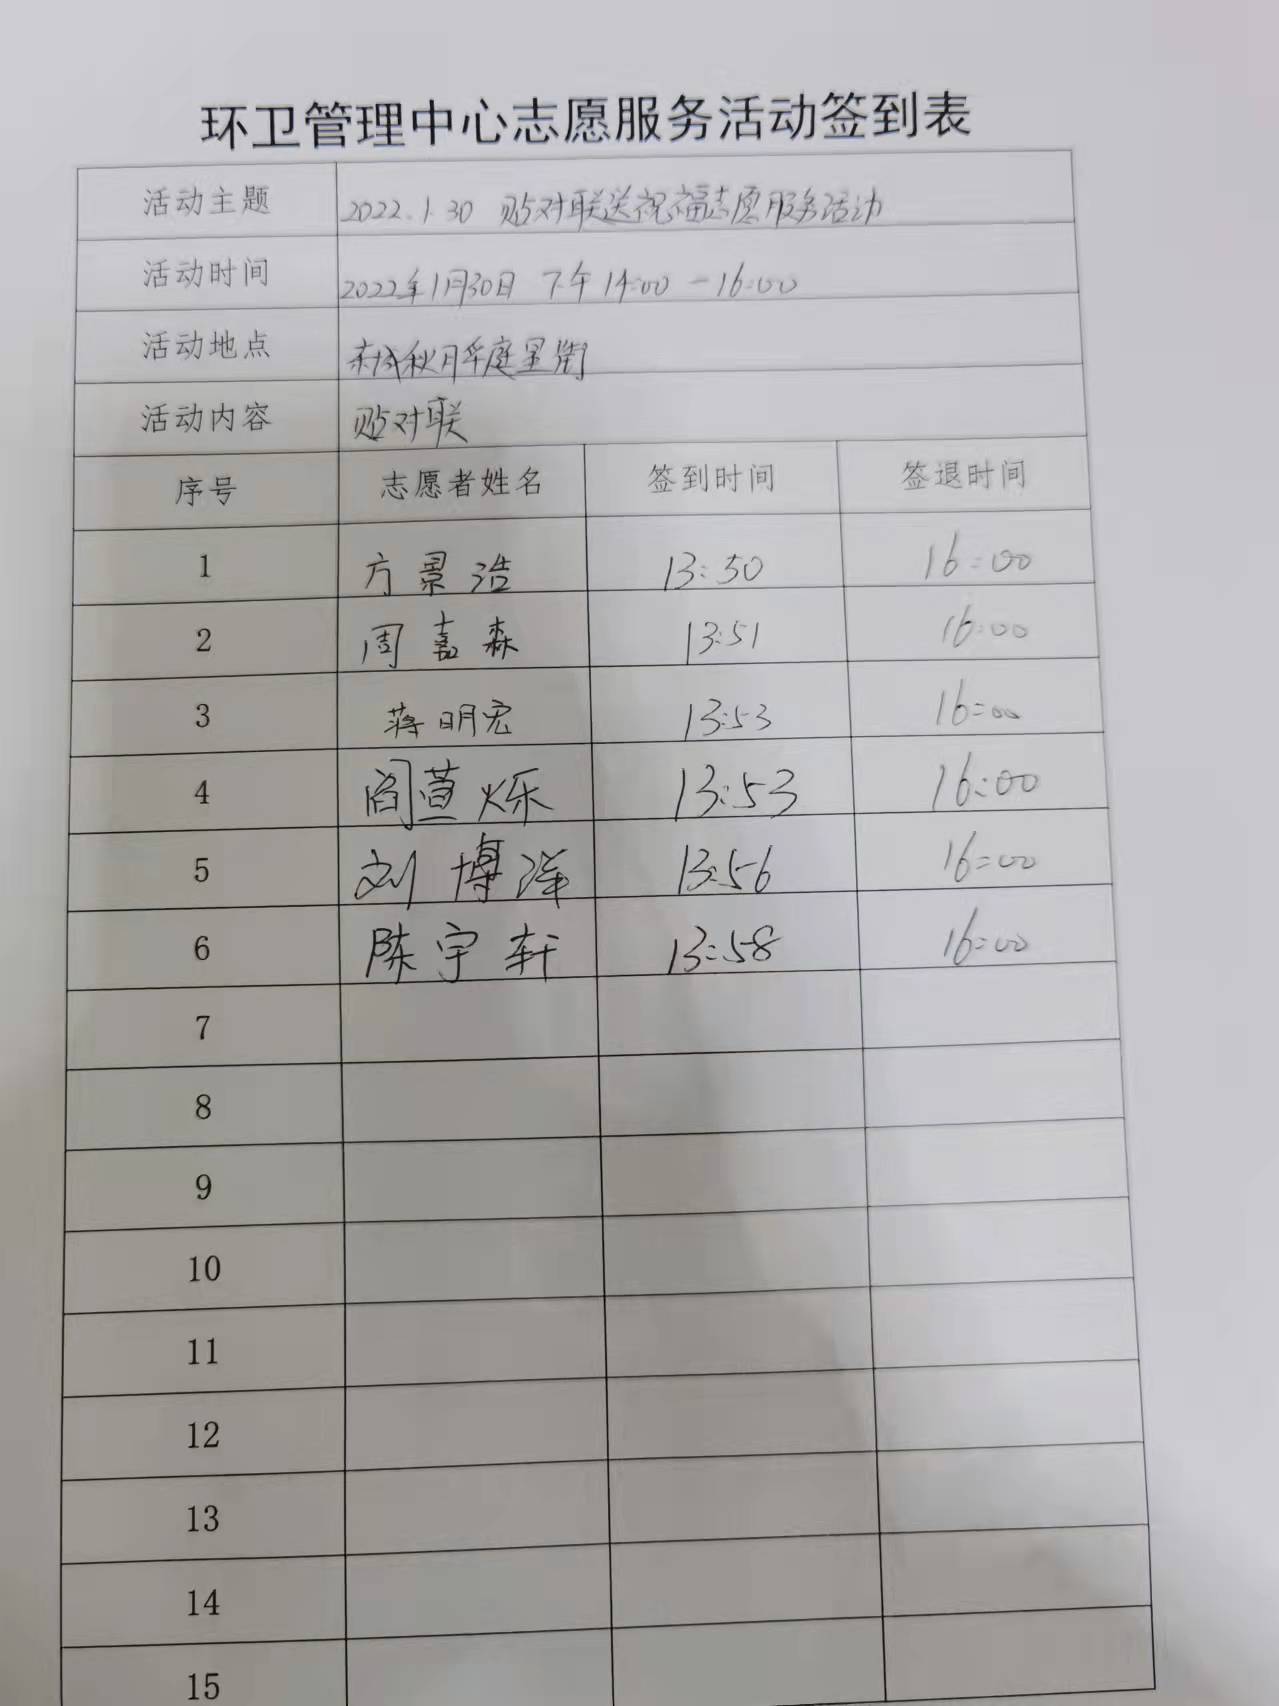 环卫管理中心志愿服务活动签到表
活动主题 2022.1.30 贴对联送祝福志愿服务活动
活动时间 2022年1月30日 下午14:00-16:00
活动地点 秋月华庭星街
活动内容 贴对联
序号 志愿者姓名 签到时间 签退时间
1 方景浩 13:50 16:00
2 周嘉森 13:51 16:00
3 蒋明宏 13:53 16:00
4 阎萱烁 13:53 16:00
5 刘博洋 13:56 16:00
6 陈宇轩 13:58 16:00
7
8
9
10
11
12
13
14
15